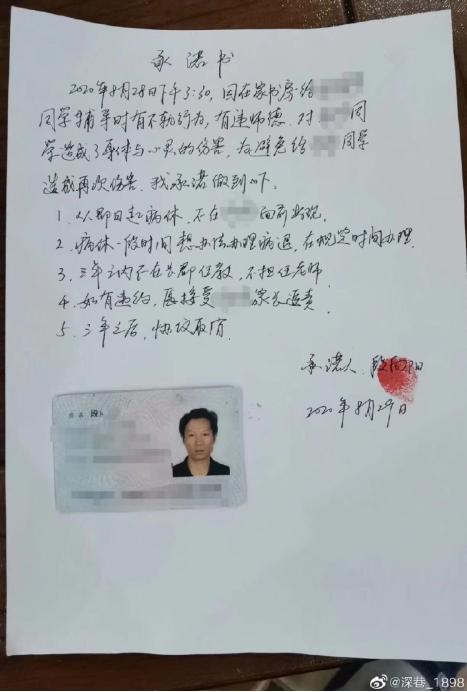 承诺书
2020年8月28日下午3:30，因在家书房给
同学辅导时有不轨行为，有违师德，对 同
学造成了身体与心灵的伤害，为避免给 同学
造成再次伤害，我承诺做到以下。
1、从即日起病休，不在 面前出现。
2、病休一段时间想办法办理病退，在规定时间办理。
3、三年之内不在长郡任教，不担任老师
4、如有违约，愿接受 家长追责。
5、三年之后，协议取消。
承诺人：段 阳
2020年8月29日
姓名 段
@深巷_1898